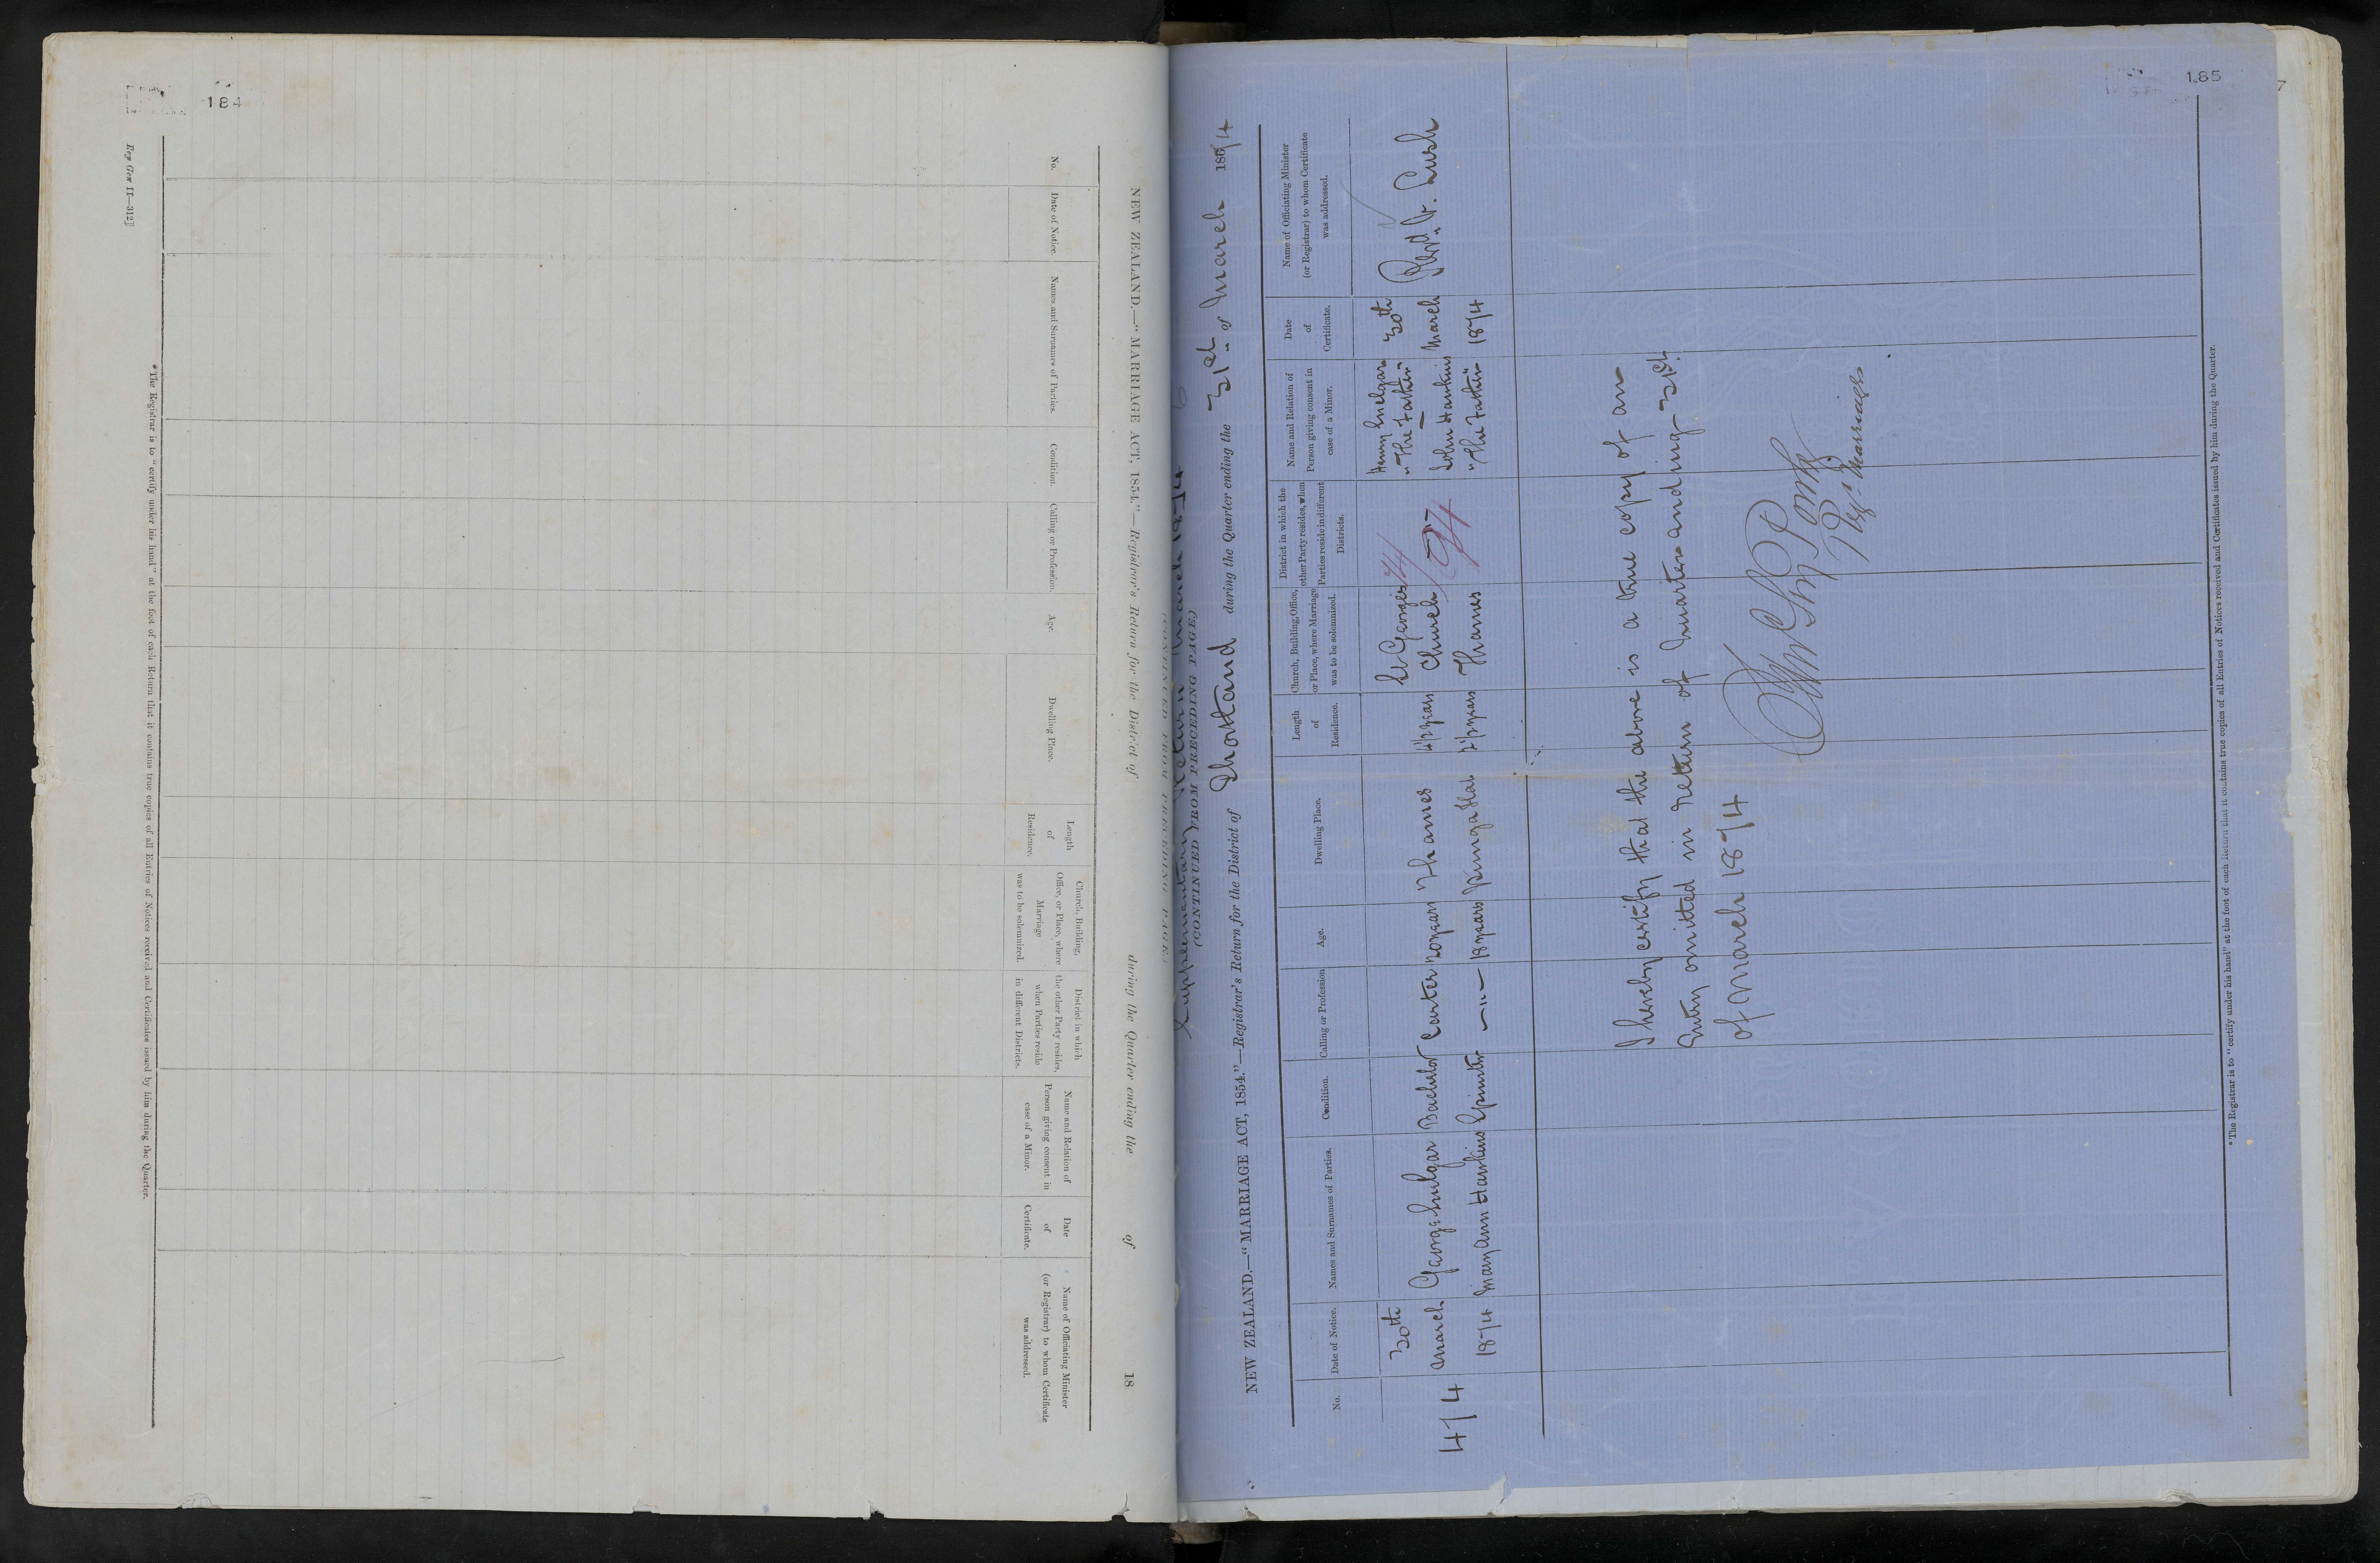 184
Reg Gen II—312]
NEW ZEALAND.—"MARRIAGE ACT, 1854."—Registrar's Return for the District of during the Quarter ending the of 18
No.
Date of Notice.
Names and Surnames of Parties.
Condition.
Calling or Profession.
Age.
Dwelling Place.
Length
of
Residence.
Church, Building,
Office, or Place, where
Marriage
was to be solemnized.
District in which
the other Party resides,
when Parties reside
in different Districts.
Name and Relation of
Person giving consent in
case of a Minor.
Date
of
Certificate.
Name of Officiating Minister
(or Registrar) to whom Certificate
was addressed.
*The Registrar is to "certify under his hand" at the foot of each Return that it contains true copies of all Entries of Notices received and Certificates issued by him during the Quarter.
185
7
Supplementary Return March 1874
(CONTINUED FROM PRECEDING PAGE.)
NEW ZEALAND.—"MARRIAGE ACT, 1854."—Registrar's Return for the District of Shortland during the Quarter ending the 31st of March 1874
No.
Date of Notice.
Names and Surnames of Parties.
Condition.
Calling or Profession
Age.
Dwelling Place.
Length
of
Residence.
Church, Building, Office,
or Place, where Marriage
was to be solemnized.
District in which the
other Party resides, when
Parties reside in different
Districts.
Name and Relation of
Person giving consent in
case of a Minor.
Date
of
Certificate.
Name of Officiating Minister
(or Registrar) to whom Certificate
was addressed.
47/4
30th
March
1874
George Snelgar
Mary Ann Hawkins
Bachelor
Spinster
Carter
— " —
20 years
18 years
Thames
Punga Flat
4½ years
2½ years
St Georges
Church
Thames
Henry Snelgar
"The Father"
John Hawkins
"The Father"
30th
March
1874
Revd. V. Lush
I hereby certify that the above is a true copy of an
Entry omitted in Return of Quarter ending 31st
of March 1874
Regr. Marriages
*The Registrar is to "certify under his hand" at the foot of each Return that it contains true copies of all Entries of Notices received and Certificates issued by him during the Quarter.